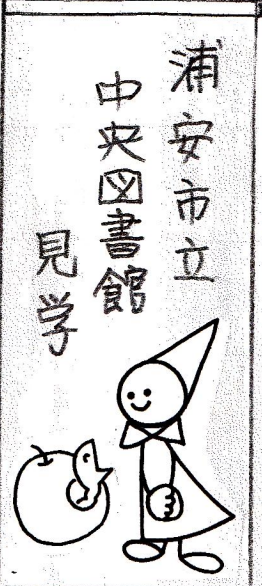 浦安市立
中央図書館
見学